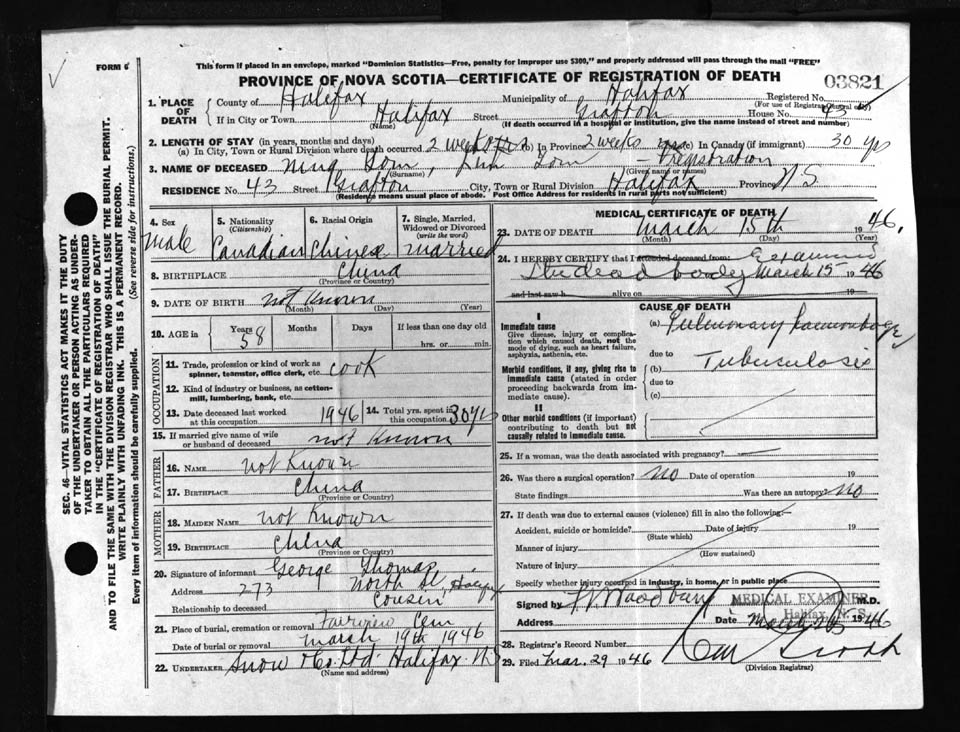 FORM 6
This form if placed in an envelope, marked "Dominion Statistics—Free, penalty for improper use $300," and properly addressed will pass through the mail "FREE"
PROVINCE OF NOVA SCOTIA—CERTIFICATE OF REGISTRATION OF DEATH
03821
1. PLACE OF DEATH
County of Halifax Municipality of Halifax Registered No.
(For use of Registrar General only)
If in City or Town Halifax Street Grafton House No. 43
(Name) (If death occurred in a hospital or institution, give the name instead of street and number)
2. LENGTH OF STAY (in years, months and days)
(a) In City, Town or Rural Division where death occurred 2 weeks (b) In Province 2 weeks (c) In Canada (if immigrant) 30 yrs
3. NAME OF DECEASED Ming Lom, Lim Lom - Registration
(Surname) (Given name or names)
RESIDENCE No. 43 Street Grafton City, Town or Rural Division Halifax Province N S
(Residence means usual place of abode. Post Office Address for residents in rural parts not sufficient)
4. Sex
male
5. Nationality
(Citizenship)
Canadian
6. Racial Origin
Chinese
7. Single, Married, Widowed or Divorced
(write the word)
married
8. BIRTHPLACE China
(Province or Country)
9. DATE OF BIRTH not known
(Month) (Day) (Year)
10. AGE in Years 58 Months Days If less than one day old
hrs. or min.
OCCUPATION
11. Trade, profession or kind of work as spinner, teamster, office clerk, etc. cook
12. Kind of industry or business, as cotton-mill, lumbering, bank, etc.
13. Date deceased last worked at this occupation 1946 14. Total yrs. spent in this occupation 30 yrs
15. If married give name of wife or husband of deceased not known
FATHER
16. NAME not known
17. BIRTHPLACE China
(Province or Country)
MOTHER
18. MAIDEN NAME not known
19. BIRTHPLACE China
(Province or Country)
20. Signature of informant George Thomas
Address 273 North St, Halifax
Relationship to deceased Cousin
21. Place of burial, cremation or removal Fairview Cem
Date of burial or removal march 19th 1946
22. UNDERTAKER Snow & Co. Ltd. Halifax N S
(Name and address)
MEDICAL CERTIFICATE OF DEATH
23. DATE OF DEATH March 15th 1946.
(Month) (Day) (Year)
24. I HEREBY CERTIFY that I attended deceased from: Examined
the dead body March 15 1946
and last saw h alive on 19
I
Immediate cause
Give disease, injury or complication which caused death, not the mode of dying, such as heart failure, asphyxia, asthenia, etc.
Morbid conditions, if any, giving rise to immediate cause (stated in order proceeding backwards from immediate cause).
II
Other morbid conditions (if important) contributing to death but not causally related to immediate cause.
CAUSE OF DEATH
(a) Pulmonary haemorrhage
due to
(b) Tuberculosis
due to
(c)
25. If a woman, was the death associated with pregnancy?
26. Was there a surgical operation? No Date of operation 19
State findings Was there an autopsy? No
27. If death was due to external causes (violence) fill in also the following:—
Accident, suicide or homicide? Date of injury 19
(State which)
Manner of injury
(How sustained)
Nature of injury
Specify whether injury occurred in industry, in home, or in public place
Signed by M.D.
MEDICAL EXAMINER
Halifax N. S.
Address Date March 1946
28. Registrar's Record Number
29. Filed Mar. 29 1946
(Division Registrar)
SEC. 46—VITAL STATISTICS ACT MAKES IT THE DUTY
OF THE UNDERTAKER OR PERSON ACTING AS UNDERTAKER
TO OBTAIN ALL THE PARTICULARS REQUIRED
IN THE "CERTIFICATE OF REGISTRATION OF DEATH"
AND TO FILE THE SAME WITH THE DIVISION REGISTRAR WHO SHALL ISSUE THE BURIAL PERMIT.
WRITE PLAINLY WITH UNFADING INK. THIS IS A PERMANENT RECORD.
Every item of information should be carefully supplied. (See reverse side for instructions.)